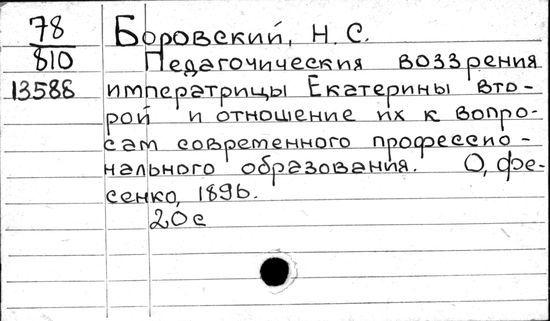 78 Боровский, Н. С.
810 Педагогическия воззрения
13588 императрицы Екатерины вто-
рой и отношение их к вопро-
сам современного профессио-
нального образования. О, фе-
сенко, 1896.
20с